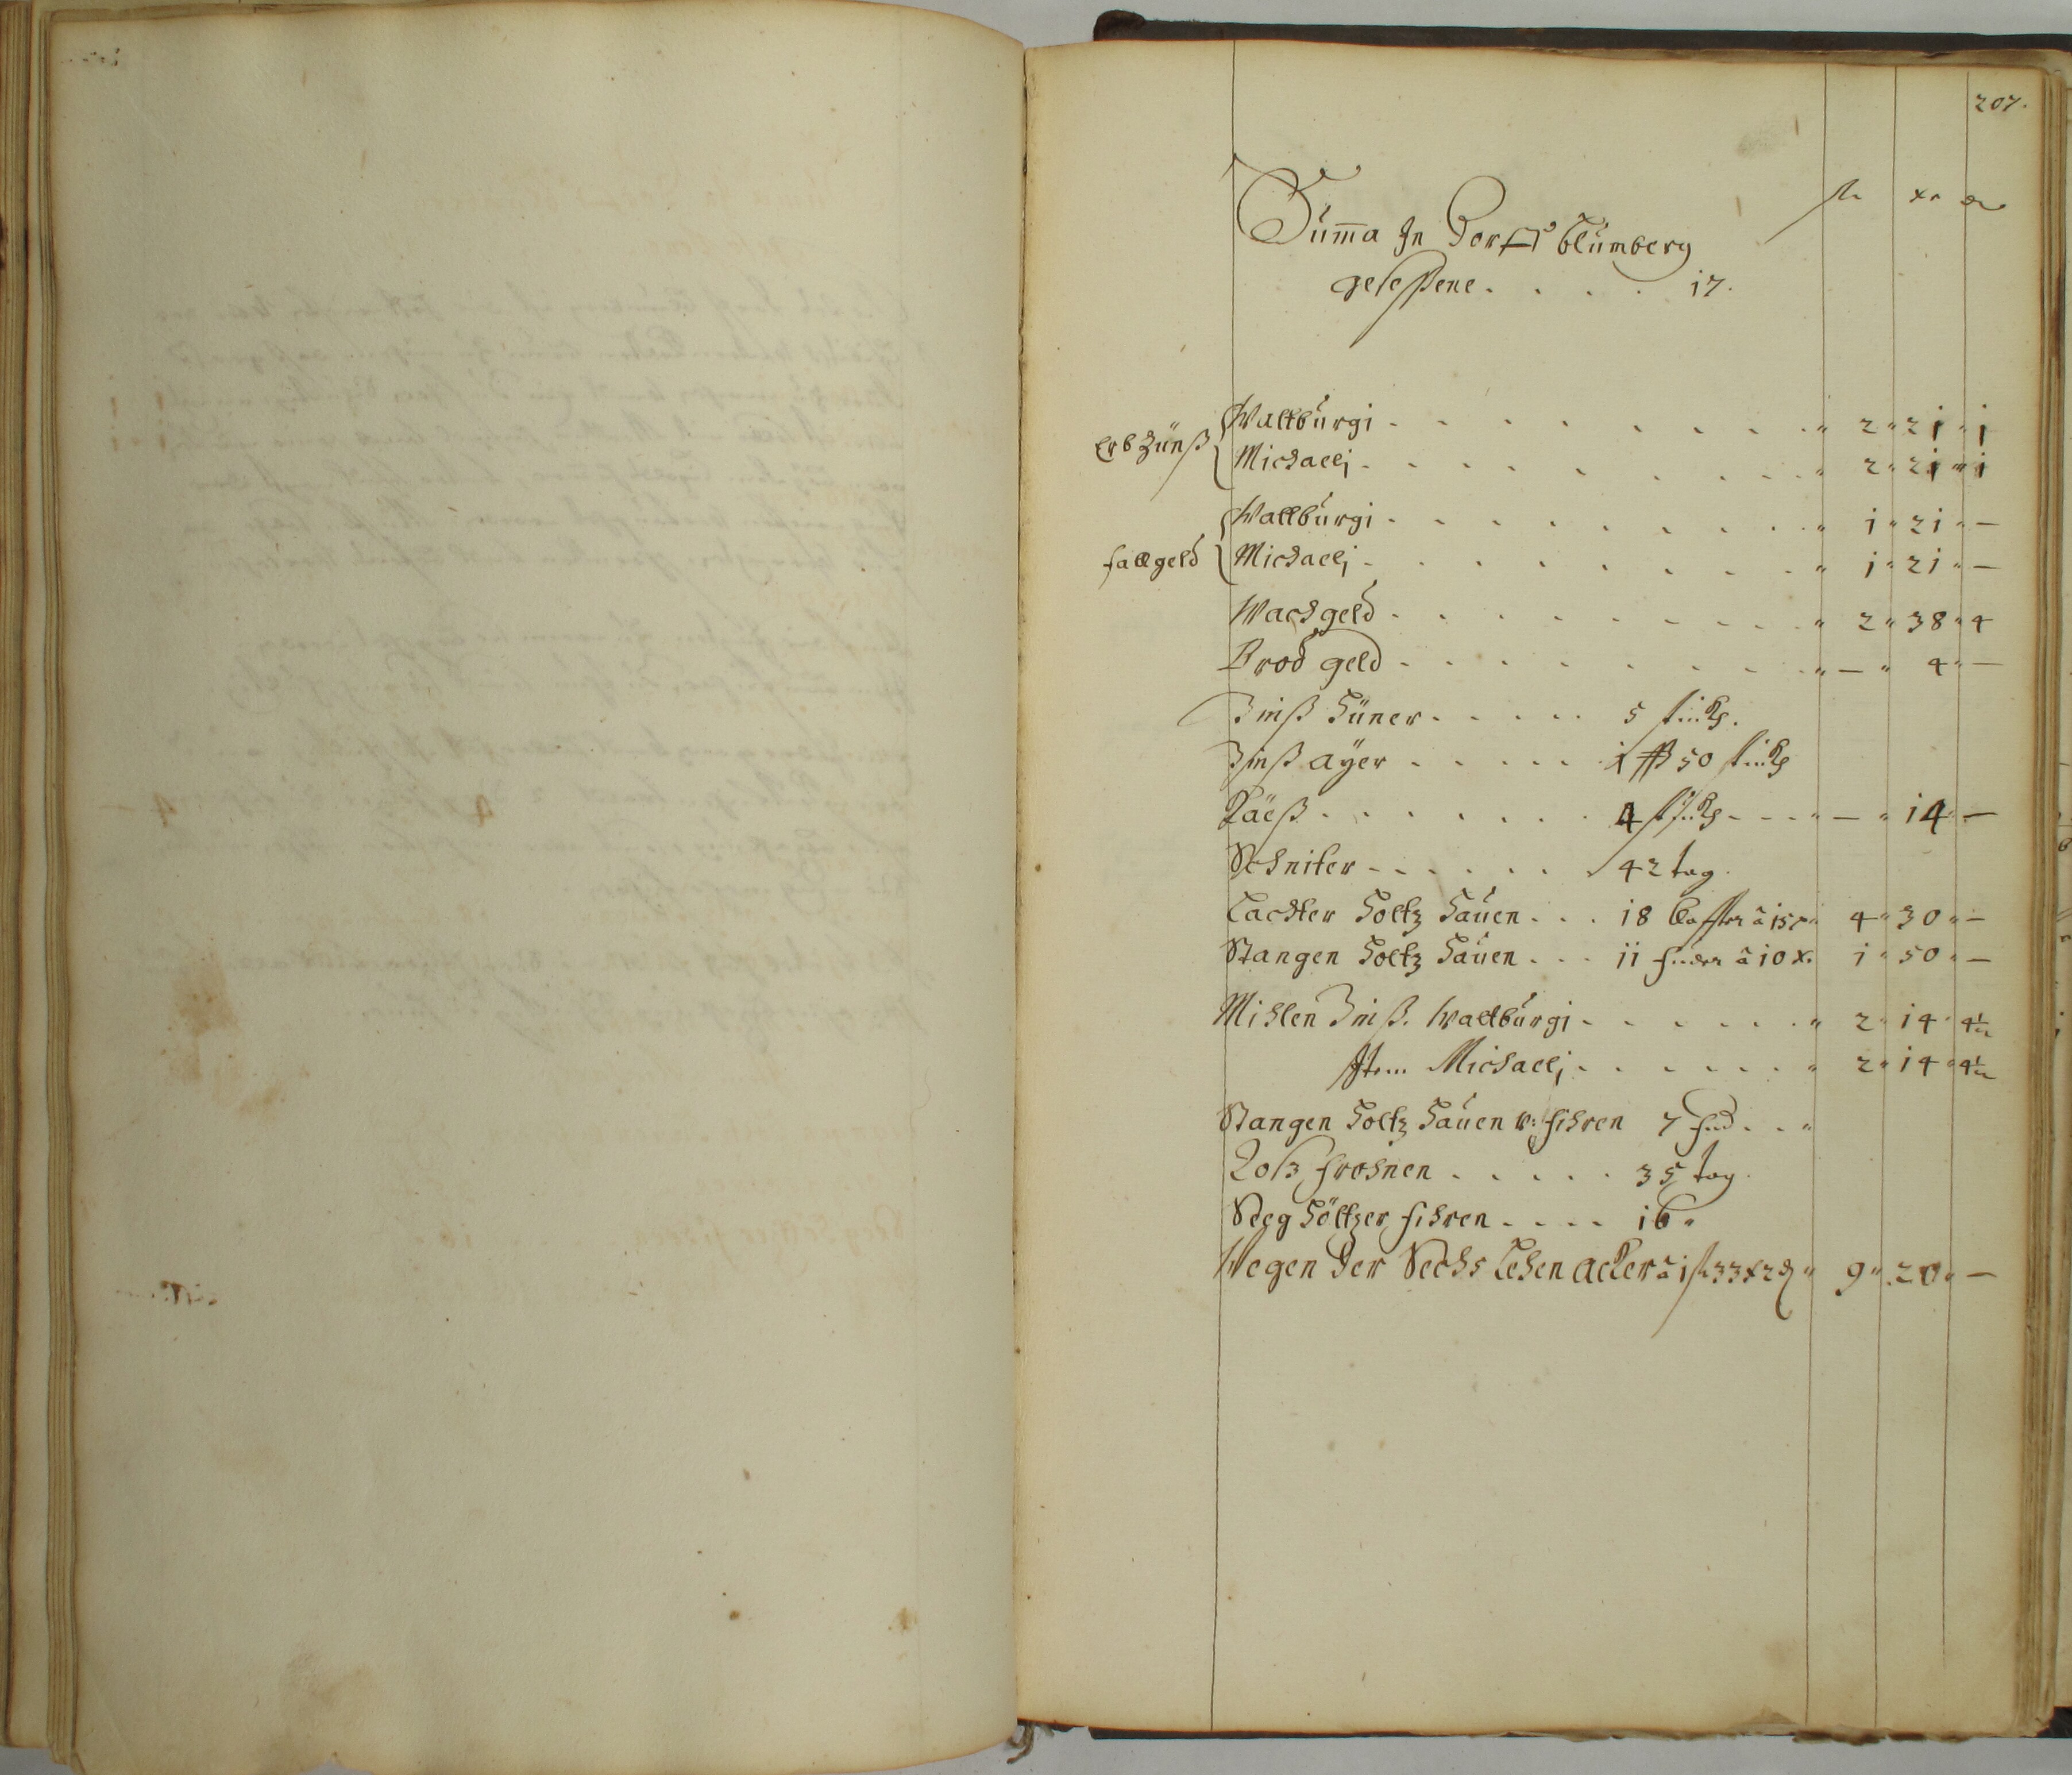 207.
fl xr ₰
Suma In Dorff Blumberg
geseßene . . . . 17.
Erbzünß { Waltburgi . . . . " 2 " 21 " 1
Michaeli . . . . " 2 " 21 " 1
fallgeld { Wallburgi . . . . " 1 " 21 " —
Michaeli . . . . " 1 " 21 " —
Wachgeld . . . . " 2 " 38 " 4
Brod geld . . . . " — " 4 " —
Zinß Hüner . . . . 5 stückh.
Zinß ayer . . . . 1 ß 50 stückh
Käeß . . . . 4 stückh - - - " — " 14 " —
Schniter . . . . 42 tag.
Lachter Holtz Hauen . . . 18 Claffter â 15 x " 4 " 30 " —
Stangen Holtz Hauen . . . 11 fueder â 10 x. 1 " 50 " —
Mihlen Zinß. Wallburgi . . . . " 2 " 14 " 4½
Item Michaeli . . . . " 2 " 14 " 4½
Stangen Holtz Hauen v: fihren 7 fud . . "
Roß frohnen . . . . 35 tag.
Seeg Höltzer fihren . . . . 16 "
Wegen der Sechs Lehen acker â 1 fl 33 x 2 ₰ " 9 " 20 " —